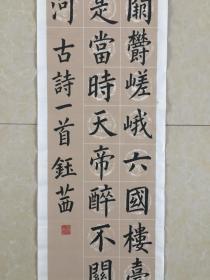 關欝嵯峨六國樓臺
是當時天帝醉不關
河古詩一首鈺茜